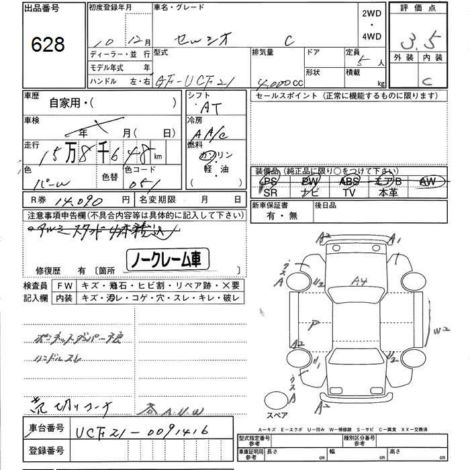 出品番号 初度登録年月 車名・グレード 2WD ・ 4WD 評価点
628 10 12月 セルシオ C 3.5
ディーラー・並行 型式 排気量 ドア 定員 5人 外装 内装
モデル年式 年 形状 積載 C
ハンドル 左・右 GF-UCF21 4,000CC kg
車歴 自家用・( ) シフト AT セールスポイント(正常に機能するものに限ります)
車検 年 月 冷房 AA/C
走行 15万8千648km 燃料 ガソリン
軽・油
色 パール 色替 色コード 051
装備品(純正品に限り○をつけて下さい)
PS PW ABS エアB AW
SR ナビ TV 本革
R券 14,090円 名変期限 月 日 新車保証書 有・無 後日品
注意事項申告欄(不具合内容等は具体的に記入して下さい)
修復歴 有(箇所 ノークレーム車
検査員記入欄 FW キズ・飛石・ヒビ割・リペア跡・X要
内装 キズ・汚レ・コゲ・穴・スレ・キレ・破レ
ボンネットダンパー不良
ハンドルスレ
A2 A1
A2
A4
P
W2
A2
A2 A1
スペア
A-キズ E-エクボ U-凹み W-修修跡 S-サビ C-腐食 XX-交換済
車台番号 UCF21-0091416
登録番号
型式指定番号 種別区分番号
車庫証明用 長さ cm 幅 cm 高さ cm